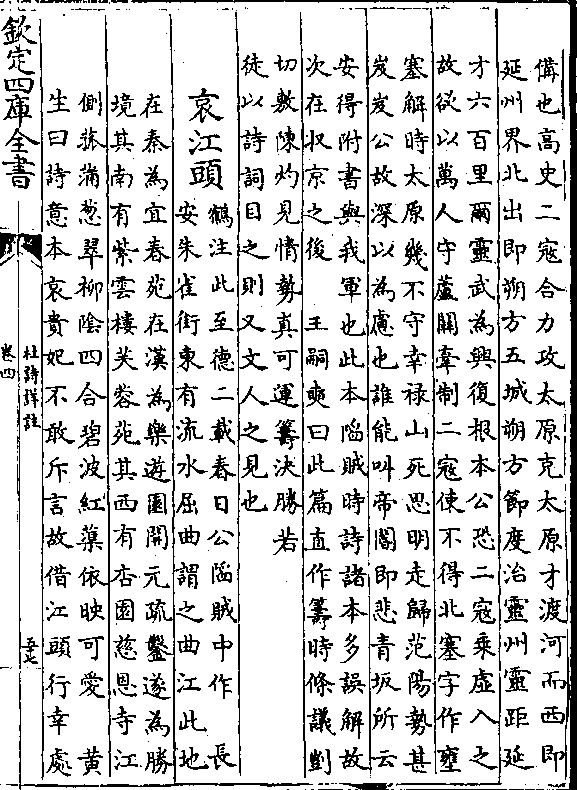 備也高史二寇合力攻太原克太原才渡河而西即
延州界北出即朔方五城朔方節度治靈州靈距延
才六百里爾靈武為興復根本公恐二寇乘虛入之
故欲以萬人守蘆關牽制二寇使不得北塞字作壅
塞解時太原幾不守幸祿山死思明走歸范陽勢甚
岌岌公故深以為慮也誰能叫帝閽即悲青坂所云
安得附書與我軍也此本陷賊時詩諸本多誤解故
次在収京之後 王嗣奭曰此篇直作籌時條議剴
切敷陳灼見情勢真可運籌決勝若
徒以詩詞目之則又文人之見也
哀江頭
鶴注此至德二載春日公陷賊中作 長
安朱雀街東有流水屈曲謂之曲江此地
在秦為宜春苑在漢為樂遊園開元疏鑿遂為勝
境其南有紫雲樓芙蓉苑其西有杏園慈恩寺江
側菰蒲葱翠柳陰四合碧波紅蕖依映可愛 黃
生曰詩意本哀貴妃不敢斥言故借江頭行幸處
欽定四庫全書
杜詩詳註
卷四
五十七